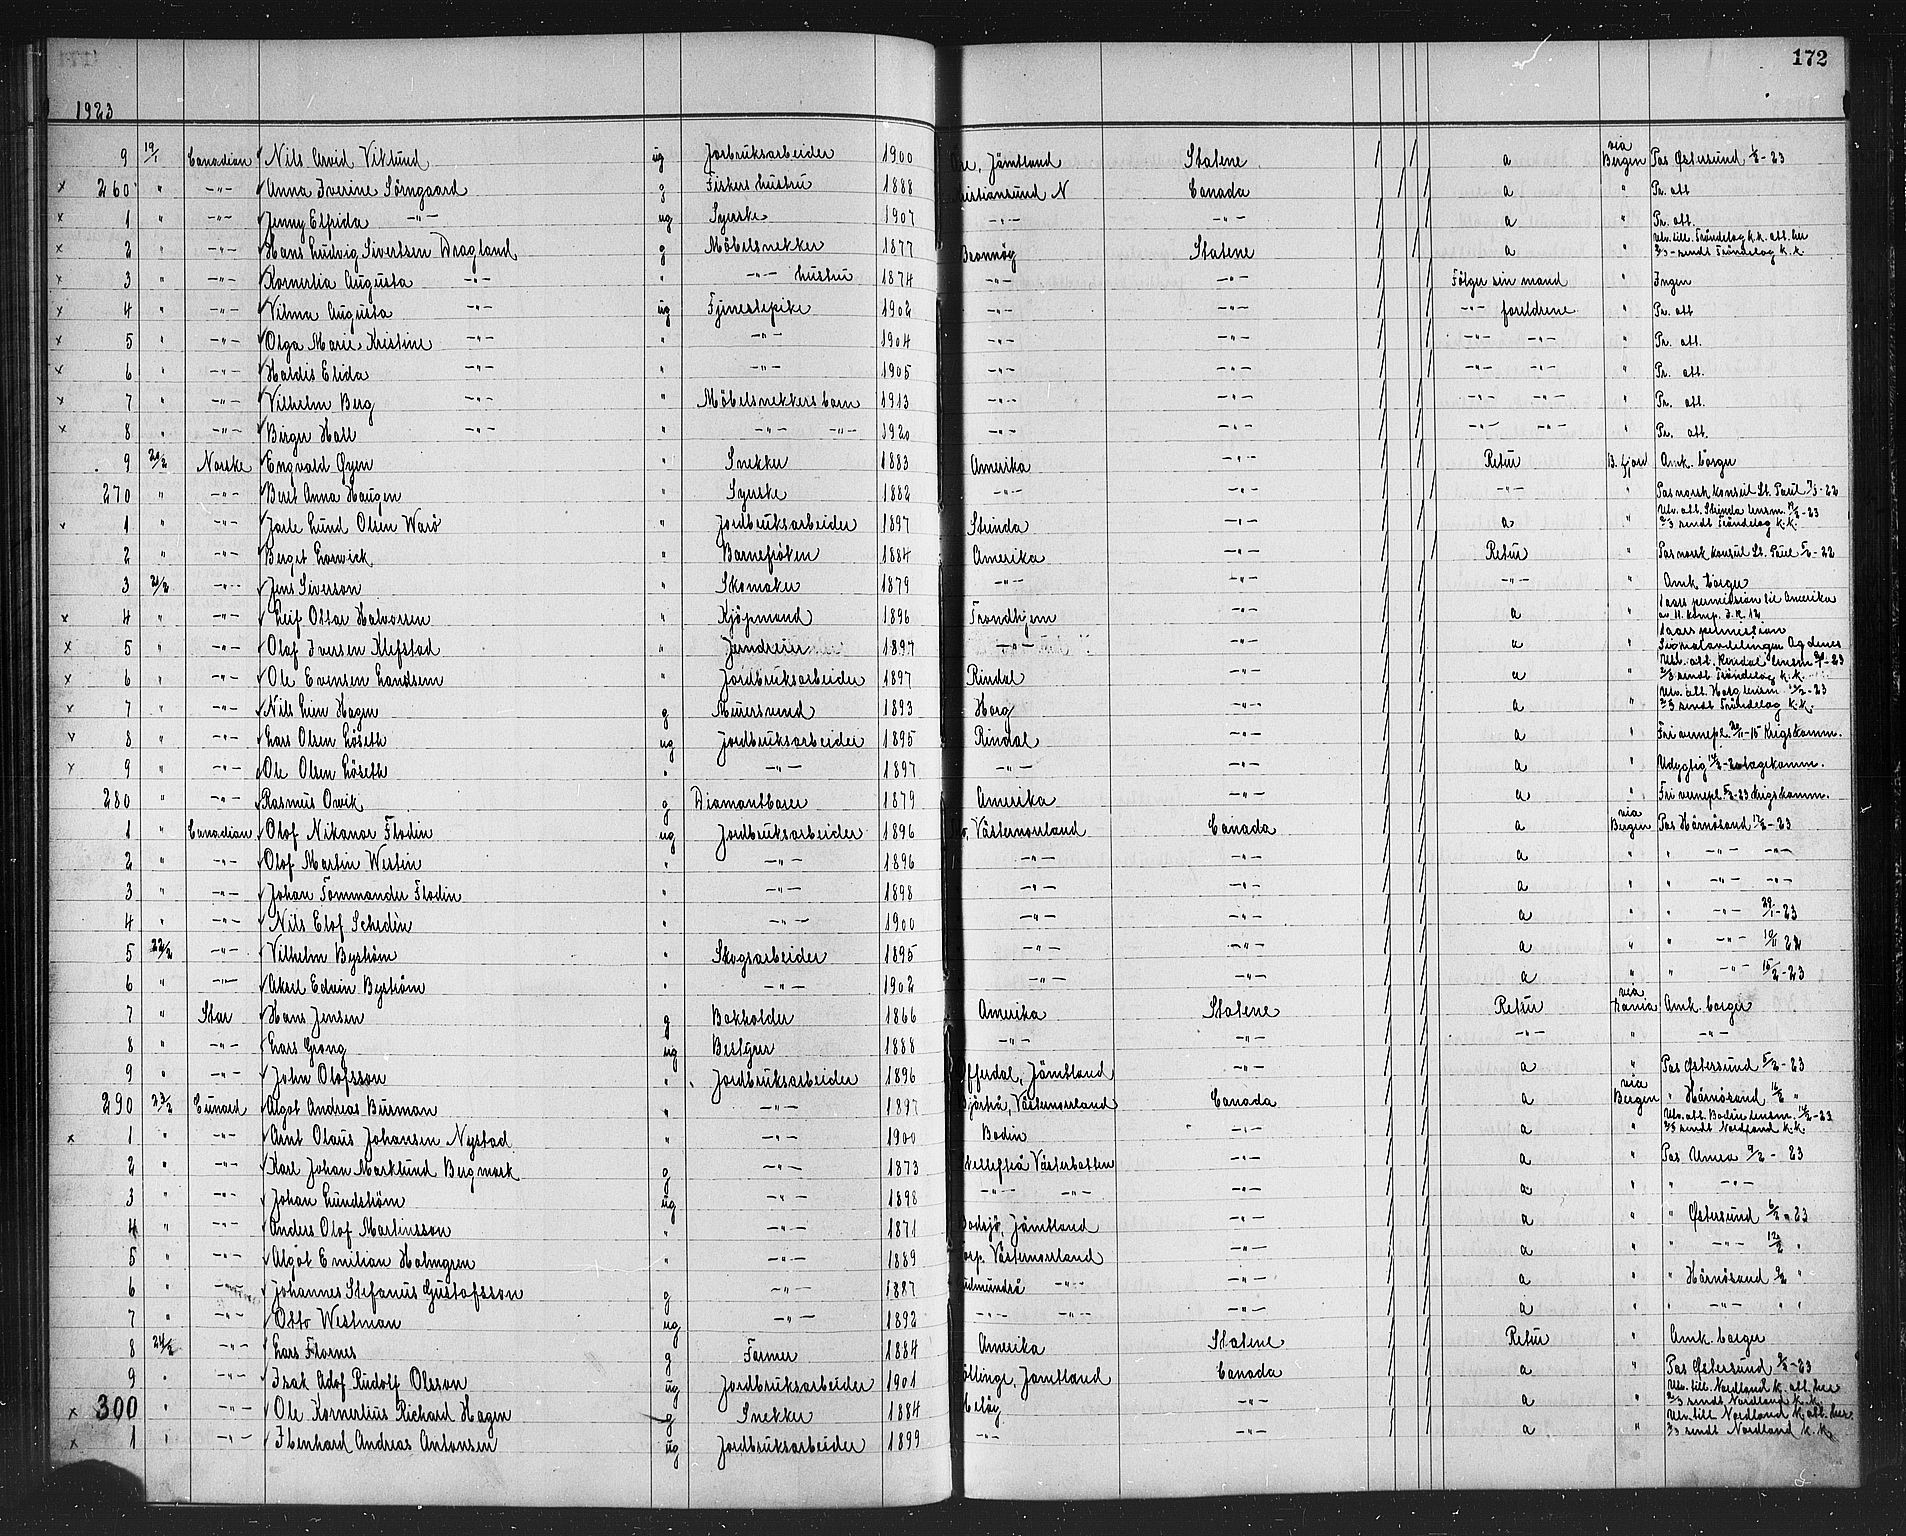 172
1923
9 19/1 Canadian Nils Arvid Viklund ug Jorbruksarbeider 1900 Jämtland Statene a via Bergen Pas Østersund -23
260 " -"- Anna Iverine Sörngaard g Fiskers hustru 1888 Kristiansund N Canada a " Pr. att
1 " -"- Jenny Elfrida -"- ug Syerske 1907 -"- -"- a " Pr. att.
2 " -"- Hans Ludvig Sivertsen Dragland g Möbelsnekker 1877 Statene a " Utv. till. Tröndelag k.k. att. her sendt Tröndelag k.k
3 " -"- Kornerlia Augusta -"- " -"- hustru 1874 -"- -"- Følger sin mand " Ingen
4 " -"- Vilma Augusta -"- ug Tjenestepike 1902 -"- -"- -"- foreldrene " Pr. att
5 " -"- Olga Marie Kristine -"- " -"- 1904 -"- -"- -"- -"- " Pr. att.
6 " -"- Haldis Elida -"- " -"- 1905 -"- -"- -"- -"- " Pr. att.
7 " -"- Vilhelm Berg -"- " Möbelsnekkers barn 1913 -"- -"- -"- -"- " Pr. att.
8 " -"- Birger Hall -"- " -"- -"- 1920 -"- -"- -"- -"- " Pr. att.
9 20/2 Norske Engvald Øyen " Snekker 1883 Amerika -"- Retur B. fjord Amk. borger
270 " -"- Beret Anna Haugen " Syerske 1882 -"- -"- -"- " Pas norsk konsul St. Paul -22
1 " -"- Jarle Lund Olsen Warö " Jordbruksarbeider 1897 Strinda -"- a " Utv. att. Strinda lensm. -23 sendt Tröndelag k.k.
2 " -"- Berget Larwick " Barnefröken 1884 Amerika -"- Retur " Pas norsk konsul St. Paul -22
3 21/2 -"- Jens Siverson " Skomaker 1879 -"- -"- -"- " Amk borger
4 " -"- Leif Ottar Halvorsen " Kjöpmand 1896 Trondhjem -"- a " 1 aars permission til Amerika av 11. komp. I.R. 12
5 " -"- Olaf Iversen Klefstad " Jerndreier 1897 -"- -"- a " 1 aars permission Signalavdelingen Agdenes
6 " -"- Ole Evensen Landsem " Jordbruksarbeider 1897 Rindal -"- a " Utv. att. Rindal lensm -23 sendt Tröndelag k.k.
7 " -"- Nils Lien Hagen g Muersvend 1893 Horg -"- a " Utv. att. Horg lensm -23 sendt Tröndelag k.k.
8 " -"- Lars Olsen Löseth ug Jordbruksarbeider 1895 Rindal -"- a " Fri vernepl. -15 Krigskomm.
9 " -"- Ole Olsen Löseth " -"- 1897 -"- -"- a " Udygtig
280 " -"- Rasmus Owik g 1879 Amerika -"- a " Fri vernepl. -23 Krigskomm.
1 " Canadian Olof Nikanor Flodin ug Jordbruksarbeider 1896 Västernorrland Canada a via Bergen Pas Härnösand -23
2 " -"- Olof Martin Westin " -"- 1896 -"- -"- a " " -"- -"-
3 " -"- Johan Tommander Flodin " -"- 1898 -"- -"- a " " -"- -"-
4 " -"- Nils Elof Schedin " -"- 1900 -"- -"- a " " -"- 29/1-23
5 22/2 -"- Vilhelm Byström " Skogsarbeider 1895 -"- -"- a " " -"- 22
6 " -"- Aksel Edvin Byström " -"- 1902 -"- -"- a " " -"- 15/2-23
7 " Star Hans Jensen g Bokholder 1866 Amerika Statene Retur via Amk. borger
8 " -"- Lars Grong ug Bestyrer 1888 -"- -"- -"- " -"-
9 " -"- John Olofsson " Jordbruksarbeider 1896 Offerdal, Jämtland -"- a " Pas Østersund 5/2-23
290 23/2 Cunard Algot Andreas Burman " -"- 1897 Bjärtrå, Västernorrland Canada a via Bergen " Härnösand "
1 " -"- Arnt Olaus Johansen Nystad " -"- 1900 Bodin -"- a " Utv. att. Bodin lensm. -23 sendt Nordland k.k.
2 " -"- Karl Johan Marklund Bergmark g -"- 1873 Skellefteå Västerbotten -"- a " Pas Umea 9/2-23
3 " -"- Johan Lundström ug -"- 1898 -"- -"- -"- a " " -"-
4 " -"- Anders Olof Martinsson " -"- 1871 Bodsjö, Jämtland -"- a " " Østersund 23
5 " -"- Algot Emilian Holmgren " -"- 1889 Torp. Västernorrland -"- a " " -"- "
6 " -"- Johannes Stefanus Gustafsson g -"- 1887 Gudmundrå -"- -"- a " " Härnösand "
7 " -"- Otto Westman ug -"- 1892 -"- -"- -"- a " " -"- " "
8 24/2 -"- Lars Flornes g Farmer 1884 Amerika Statene Retur " Amk. borger
9 " -"- Isak Adof Rudolf Olsson ug Jordbruksarbeider 1901 Jämtland Canada a " Pas Østersund -23
300 " -"- Ole Kornerlius Richard Hagen g Snekker 1884 Meløy -"- a " Utv. till. Nordland k. att. her sendt Nordland k.k.
1 " -"- Ebenhard Andreas Antonsen ug Jordbruksarbeider 1899 -"- -"- a " Utv. till Nordland k. att. her. sendt Nordland k.k.